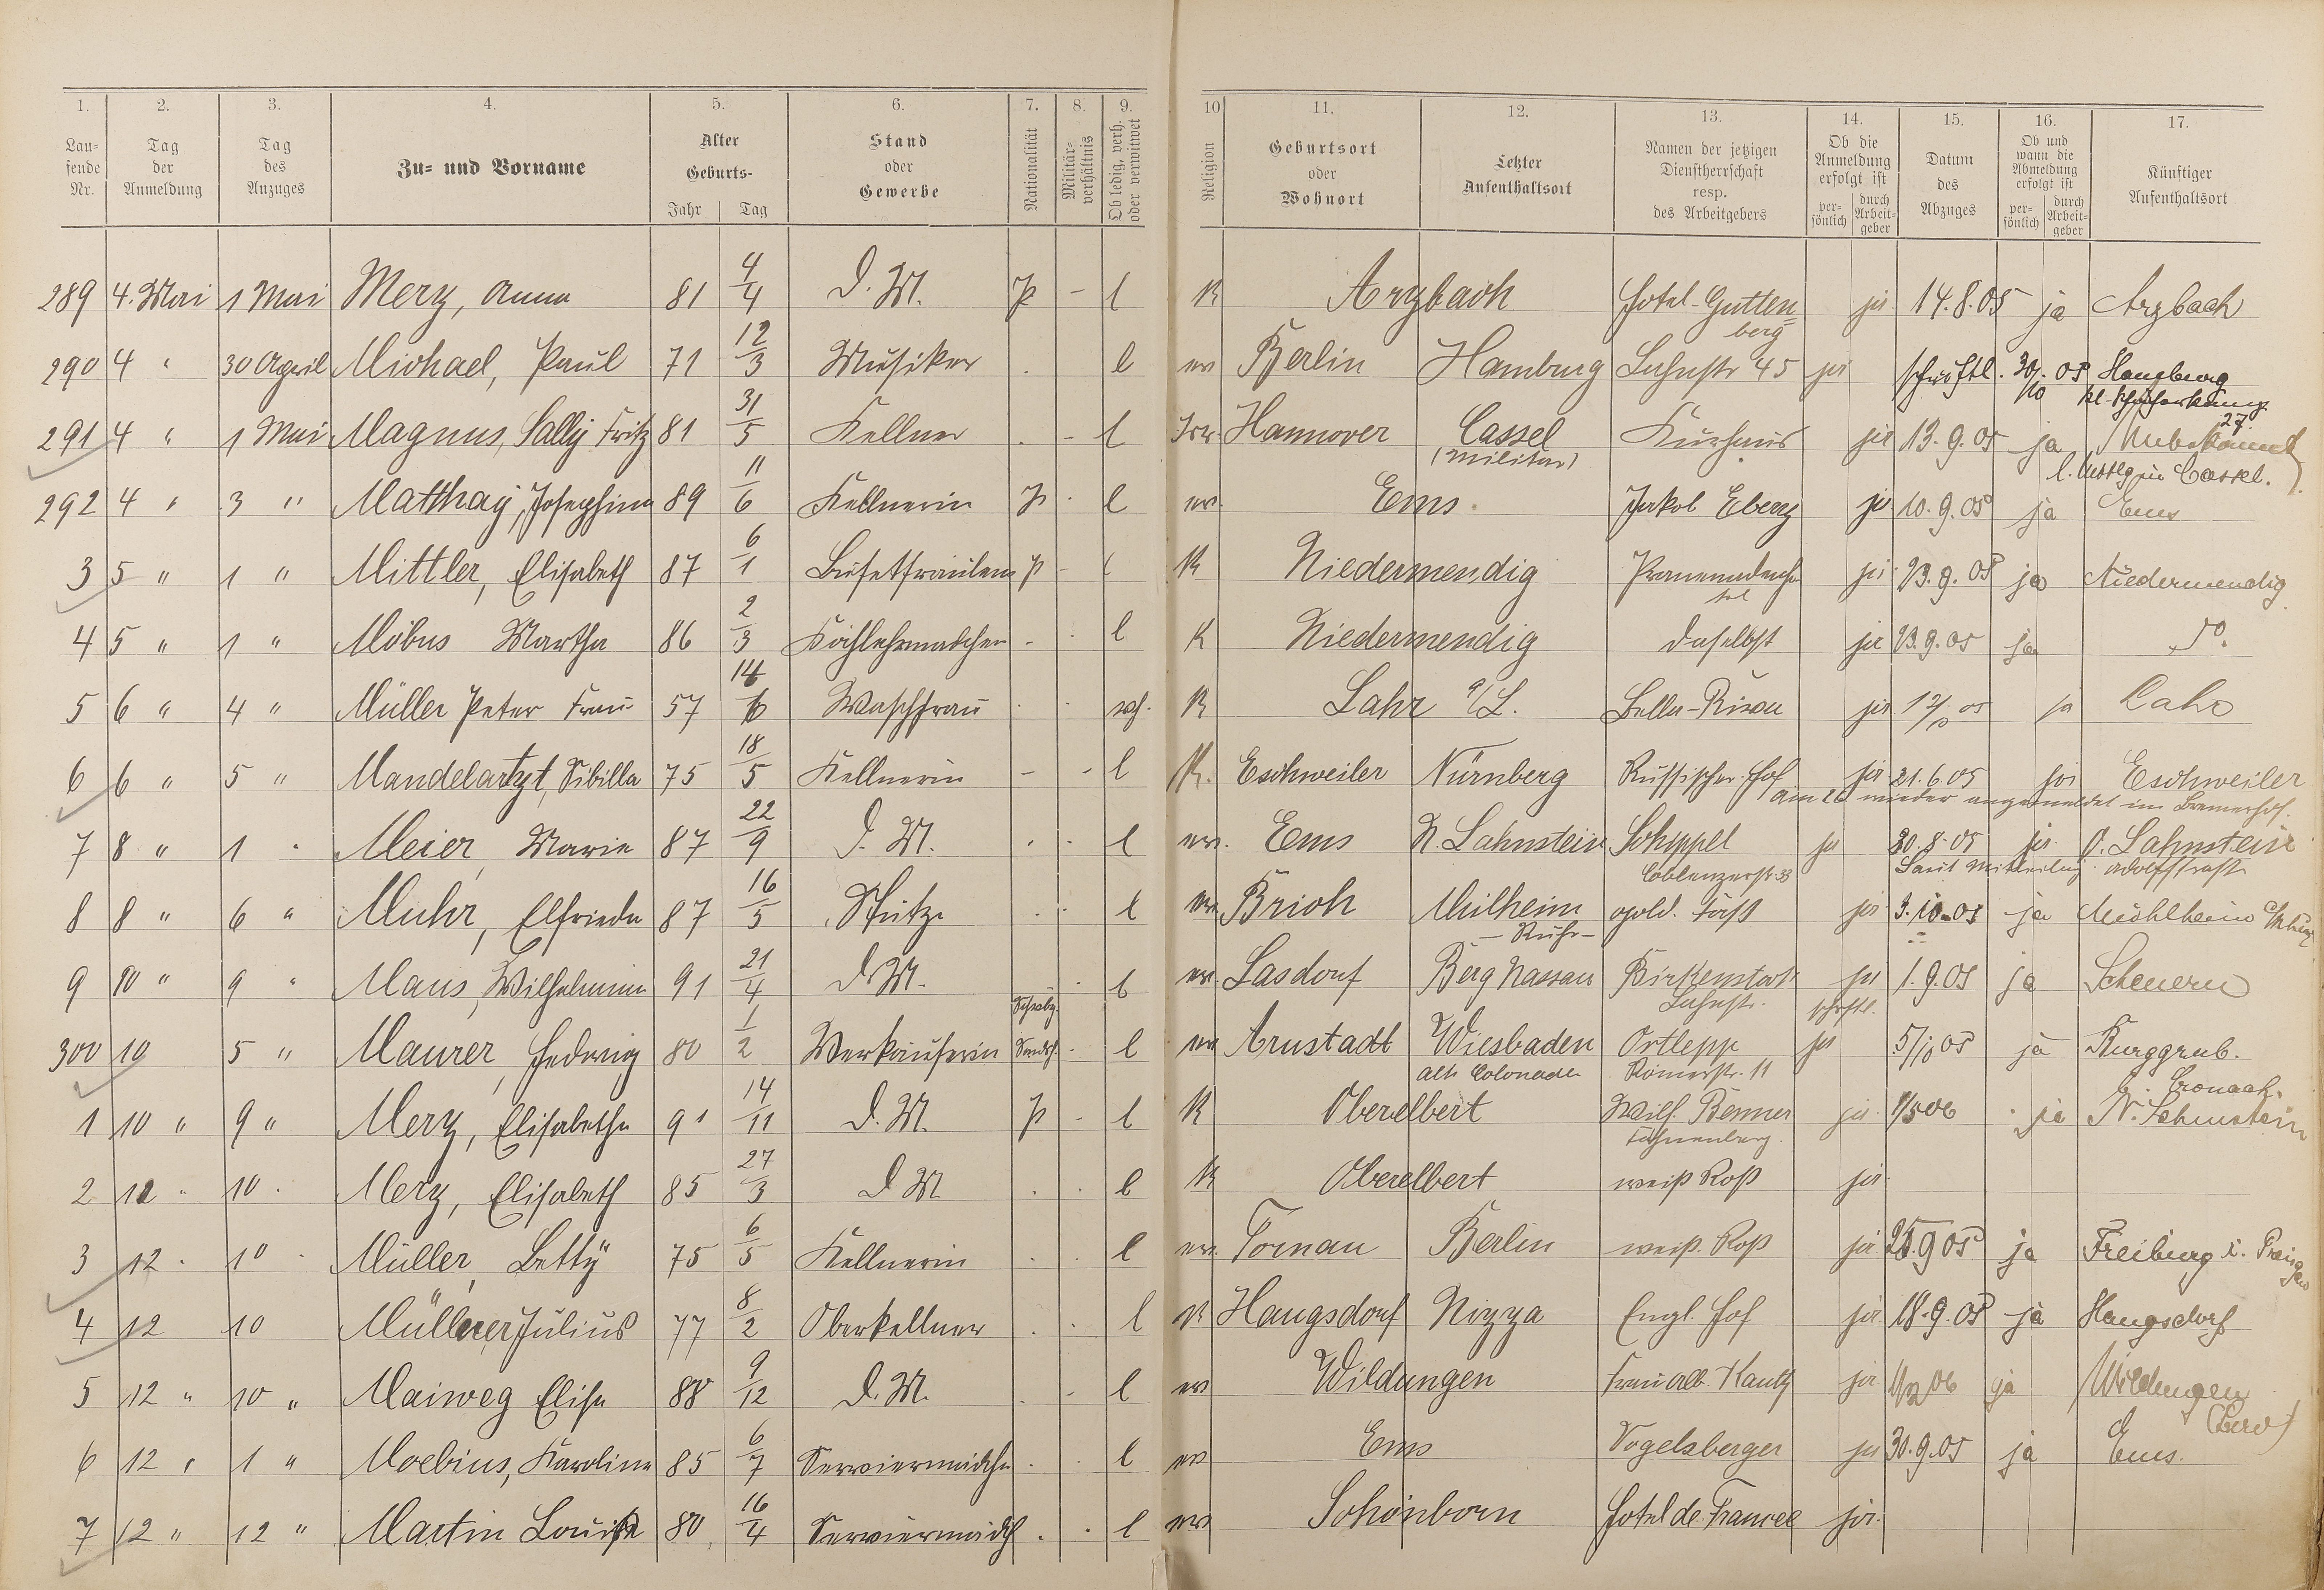 1. 2. 3. 4. 5. 6. 7. 8. 9. 10 11. 12. 13. 14. 15. 16. 17.
Laufende Nr. Tag der Anmeldung Tag des Anzuges Zu- und Vorname Alter Geburts- Jahr Tag Stand oder Gewerbe Nationalität Militär-verhältnis Ob ledig, verh. oder verwitwet Religion Geburtsort oder Wohnort Letzter Aufenthaltsort Namen der jetzigen Dienstherrschaft resp. des Arbeitgebers Ob die Anmeldung erfolgt ist per-sönlich durch Arbeit-geber Datum des Abzuges Ob und wann die Abmeldung erfolgt ist per-sönlich durch Arbeit-geber Künftiger Aufenthaltsort
289 4. Mai 1 Mai Merz, Anna 81 4/4 D. M. P - l K Arzbach Hotel Gutten=berg ja 14.8.05 ja Arzbach
290 4 " 30 April Michael, Paul 71 12/3 Musiker . l ev Berlin Hamburg Lahnstr 45 ja schriftl. 30/10 05 Hamburg
291 4 " 1 Mai Magnus, Sally Fritz 81 31/5 Kellner . - l Isr. Hannover Cassel (Militär) Kurhaus ja 13.9.05 ja Unbekannt
292 4 " 3 " Matthay, Josephine 89 11/6 Kellnerin P . l ev. Ems. Jakob Eberz ja 10.9.05 ja Ems
3 5 " 1 " Mittler, Elisabeth 87 6/1 Büfetfräulein P - l K Niedermendig ja 13.9.05 ja Niedermendig
4 5 " 1 " Möbus Martha 86 2/3 Kochlehrmädchen - . l K Niedermendig daselbst ja 13.9.05 ja Do.
5 6 " 4 " Müller Peter Frau 57 14/6 Waschfrau . . K Lahr a/L. Bella-Riva ja ja Lahr
6 6 " 5 " Mandelartzt, Sibilla 75 18/5 Kellnerin - - l K. Eschweiler Nürnberg Russischer Hof ja 21.6.05 ja Eschweiler
am 26 wieder angemeldet im Bremerhof.
7 8 " 1 " Meier, Marie 87 22/9 D. M. . . l ev. Ems N. Lahnstein Schppel Coblenzerstr. 33 ja 30.8.05 ja O. Lahnstein
Laut Mitteilung Adolfstraße
8 8 " 6 " Muhr, Elfriede 87 16/5 Stütze . . l ev. Brich Mülheim - Ruhr - gold. Faß ja 3.10.05 ja Mühlheim
9 10 " 9 " Maus, Wilhelmine 91 21/4 D M. . l ev Lasdorf Berg Nassau Birkenstock Lahnstr. ja 1.9.05 ja Scheuern
300 10 5 " Maurer, Hedwig 80 1/2 Verkäuferin . l ev Arnstadt Wiesbaden alte Colonade Ortlepp Römerstr. 11 schriftl. ja 5/10 05 ja Burggrub. b. Cronach.
1 10 " 9 " Merz, Elisabethe 91 14/11 D. M. P - l K Oberelbert Wilh. Benner ja ja N. Lahnstein
2 12 " 10 . Merz, Elisabeth 85 27/3 D M . . l K Oberelbert weiß Roß ja
3 12 . 10 . Müller, Betty 75 6/5 Kellnerin . . l ev. Tornau Berlin weiß. Roß ja 9 05 ja Freiburg i. Breisgau
4 12 10 Müllner, Julius 77 8/2 Oberkellner . . l K Haugsdorf Nizza Engl. Hof ja 18.9.05 ja Haugsdorf
5 12 " 10 " Maiweg Elise 88 9/12 D. M. . - l ev Wildungen Frau Alb. Kautz ja 06 ja Wildungen
6 12 " 1 " Moebius, Karoline 85 6/7 Serviermädchen . . l ev Ems Vogelsberger ja 30.9.05 ja Ems.
7 12 " 12 " Martin Louise 80 16/4 Serviermädch . . l ev Schönborn Hotel de France ja.